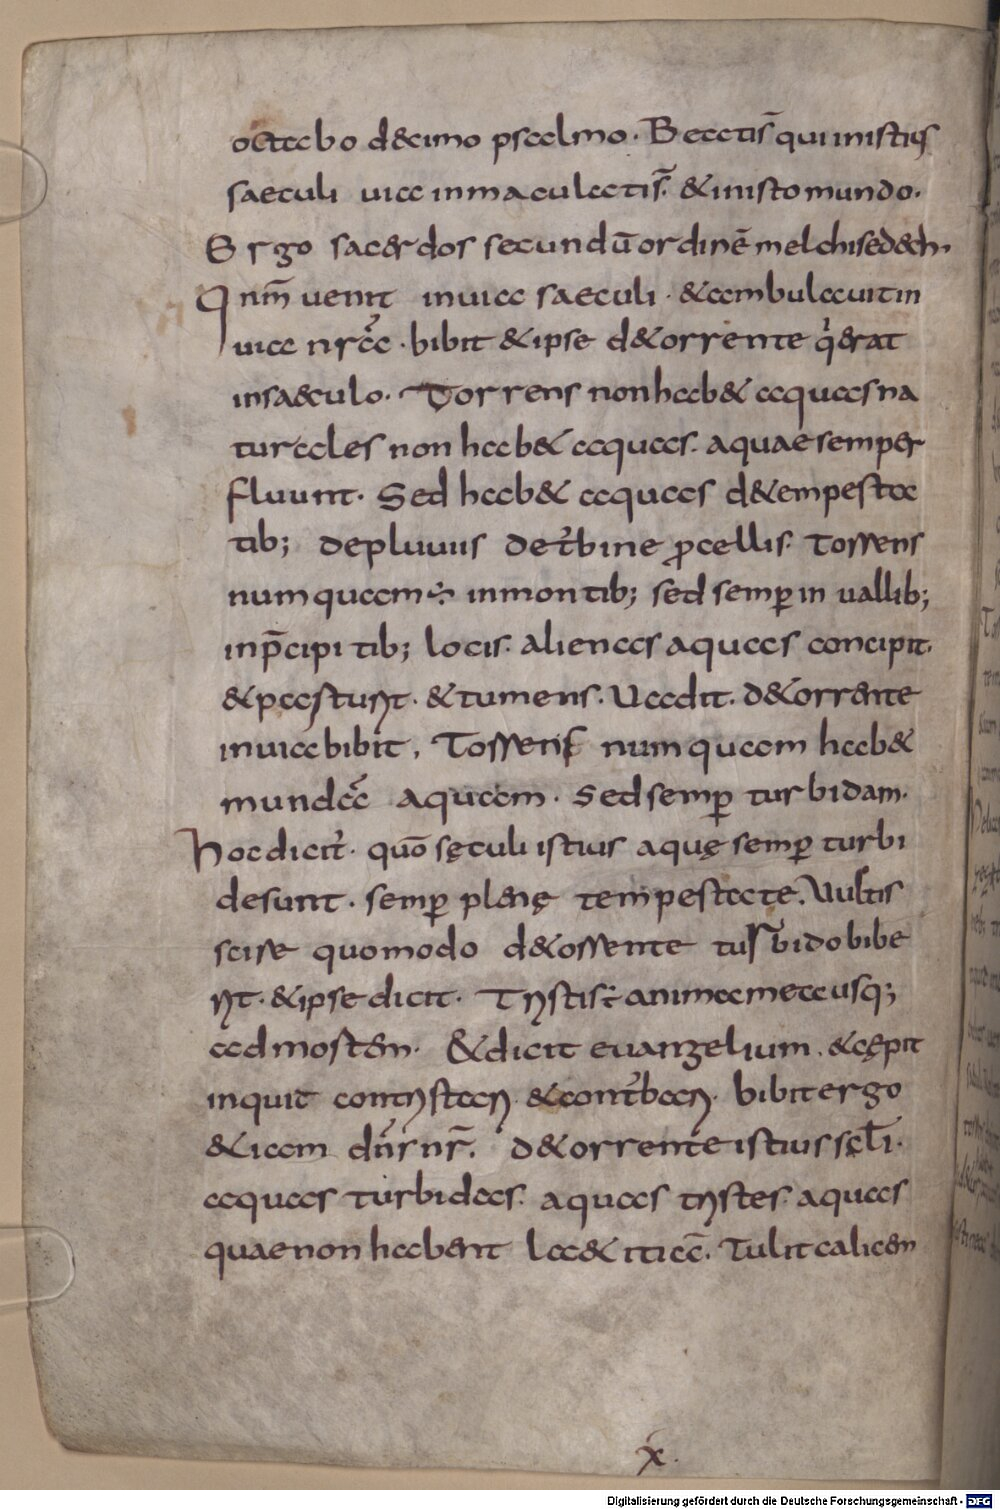 octabo decimo psalmo. Beatis̄ qui inistius
saeculi uia inmaculatis̄. & inisto mundo.
Ergo sacerdos secundū ordinē melchisedech.
Qnm̄ uenit inuia saeculi. & ambulauit in
uia nr̄a. bibit & ipse d&orrente qͥ erat
insaeculo. Torrens non hab& aquas na
turales non hab& aquas. aquae semper
fluunt. Sed hab& aquas d&empesta
tib; depluuiis det᷑bine ꝓcellis. Torrens
numquam ÷ inmontib; sed semꝑ in uallib;
inp̄cipitib; locis. alienas aquas concipit.
& pasturit. & tumens. Uadit. d&orrente
inuia bibit, Torrens numquam hab&
mundā aquam. Sed semꝑ turbidam.
Hoc dicit᷑. quō sęculi istius aquę semꝑ turbi
de sunt. semꝑ plenę tempestate. Uultis
scire quomodo d&orrente turbido bibe
rit. & ipse dicit. Tristis ÷ anima mea usq;
ad mortem. & dicit euangelium. & cępit
inquid contristari. & cont᷑bari. bibit ergo
& iam dn̄s nr̄. d&orrente istius scl̄i.
aquas turbidas. aquas tristes. aquas
quae non habent laetitiā. Tulit calicem
x.
Digitalisierung gefördert durch die Deutsche Forschungsgemeinschaft - DFG